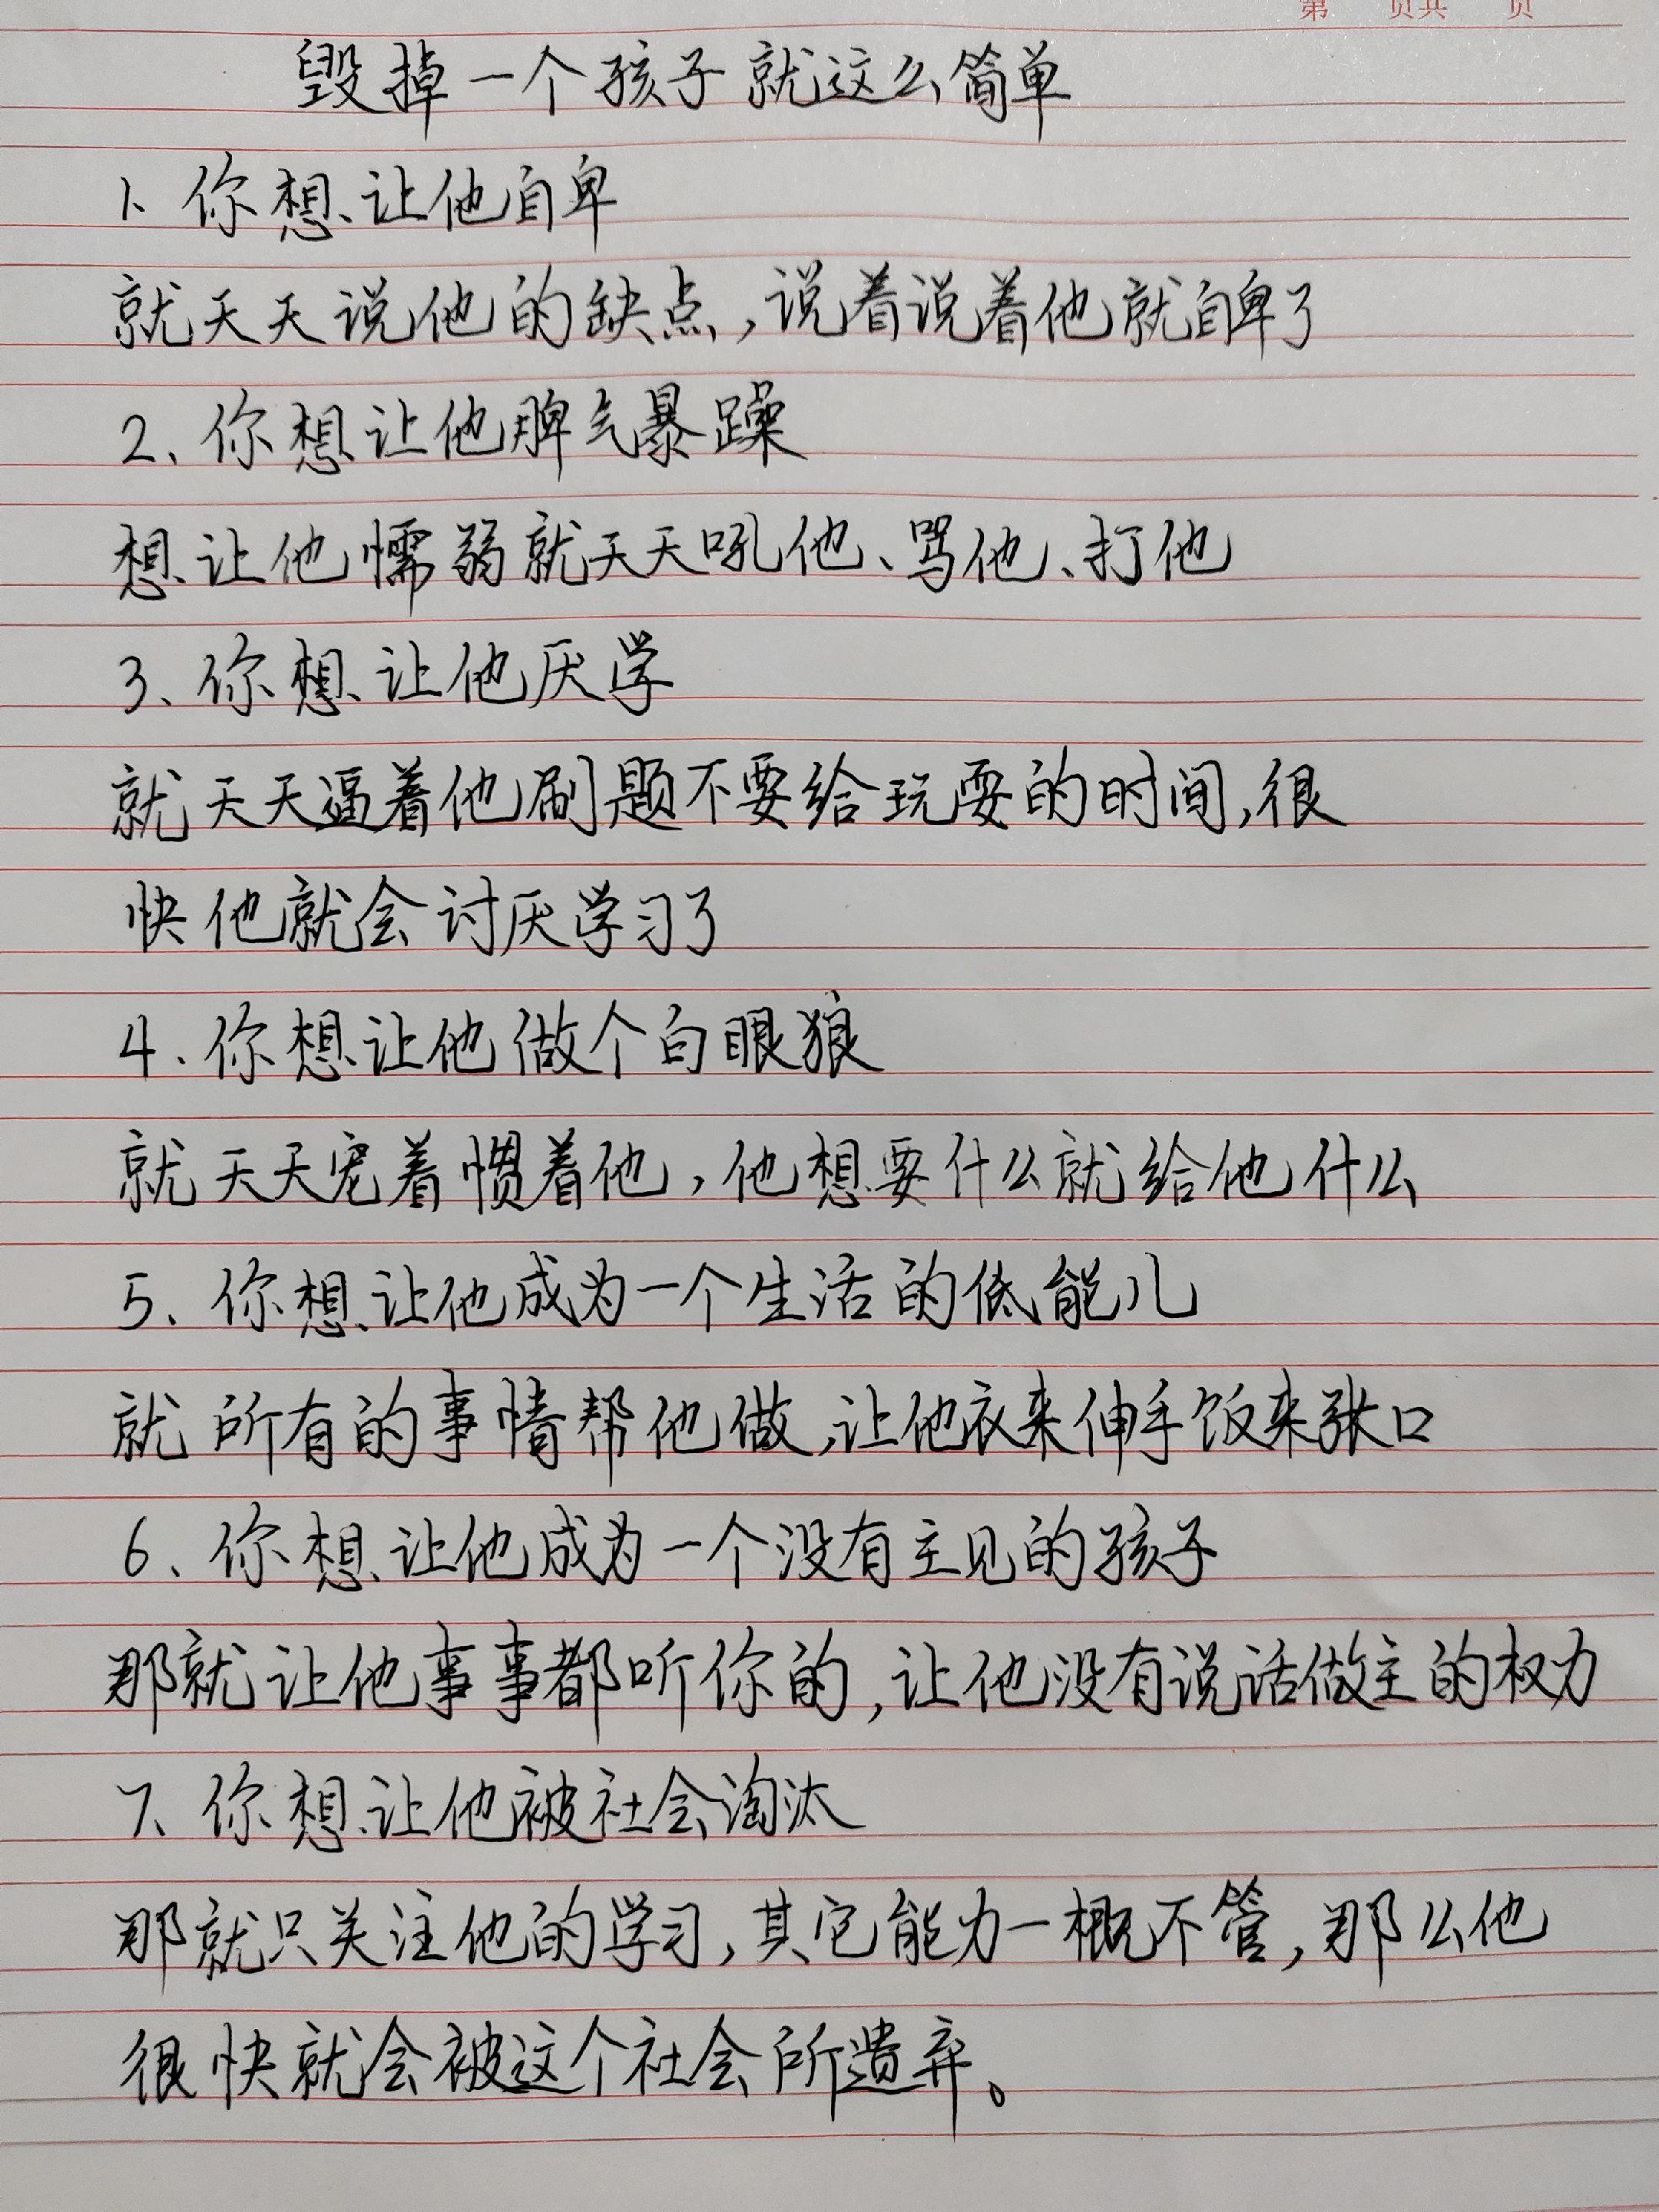 第 页共 页
毁掉一个孩子就这么简单
1、你想让他自卑
就天天说他的缺点,说着说着他就自卑了
2、你想让他脾气暴躁
想让他懦弱就天天吼他、骂他、打他
3、你想让他厌学
就天天逼着他刷题不要给玩耍的时间,很
快他就会讨厌学习了
4.你想让他做个白眼狼
就天天宠着惯着他,他想要什么就给他什么
5、你想让他成为一个生活的低能儿
就所有的事情帮他做,让他衣来伸手饭来张口
6、你想让他成为一个没有主见的孩子
那就让他事事都听你的,让他没有说话做主的权力
7、你想让他被社会淘汰
那就只关注他的学习,其它能力一概不管,那么他
很快就会被这个社会所遗弃。